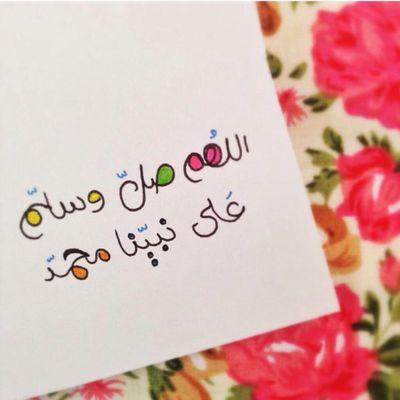 اللهُم صلّ وسلّم
عَلى نبيّنا محمّد